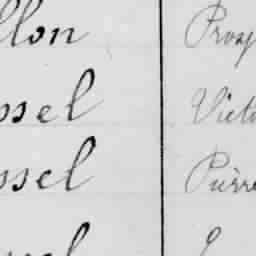 llon Prosp
ssel Victo
ssel Pierre
ssel